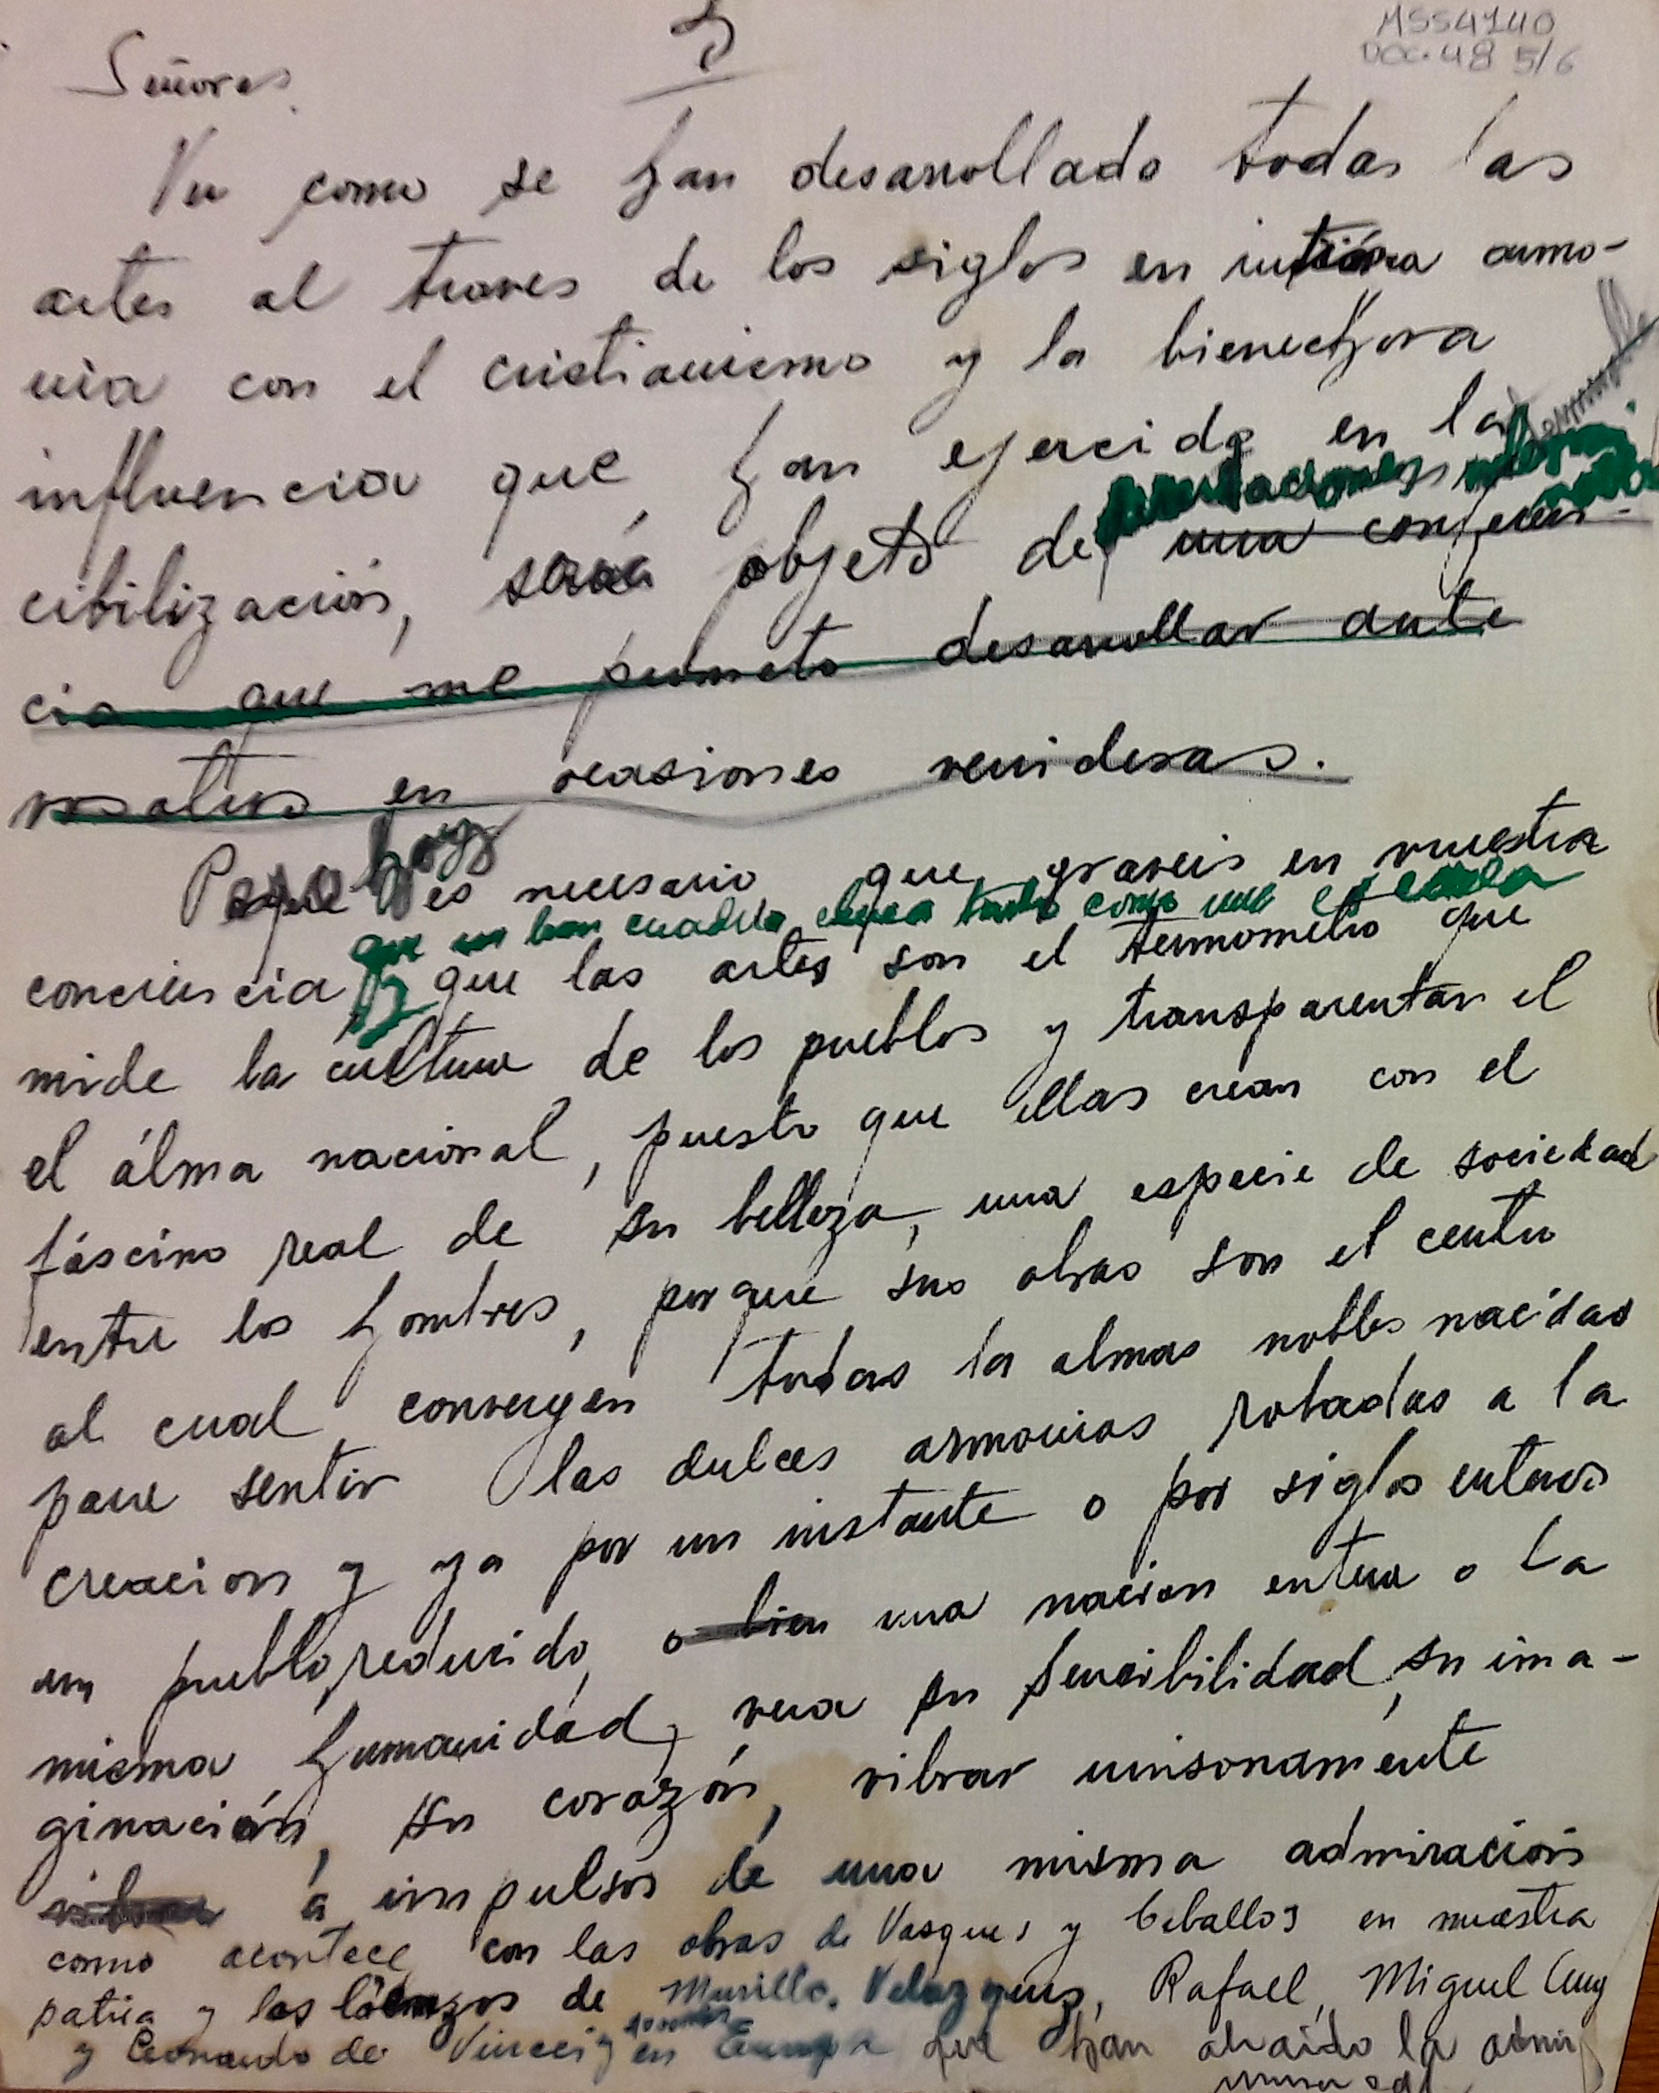 MSS4140
DOC. 48 5/6
5
Señores
Ver como se han desarrollado todas las
artes al traves de los siglos en intima armo-
nia con el cristianismo y la bienechora
influencia que han ejercido en la
cibilización, será objeto de una conferen-
cia que me prometo desarrollar ante
vosotros en ocasiones venideras.
hoy
es necesario que graveis en vuestra
que un buen cuadro educa tanto como una escuela
conciencia, y que las artes son el termometro que
mide la cultura de los pueblos y transparentan el
el álma nacional, puesto que ellas crean con el
fáscino real de su belleza, una especie de sociedad
entre los hombres, porque sus obras son el centro
al cual convergen todas la almas nobles nacidas
para sentir las dulces armonias robadas a la
creacion y ya por un instante o por siglos enteros
un pueblo reducido, o bien una nacion entera o la
misma humanidad, vera su sensibilidad, su ima-
ginación, su corazón, vibrar unisonamente
vibrar a impulsos de una misma admiración
como acontece con las obras de Vasques y Ceballos en nuestra
patria y los lienzos de Murillo, Velazques, Rafael, Miguel Ang
y Leonardo de Vincci y en Europa que han atraído la admi